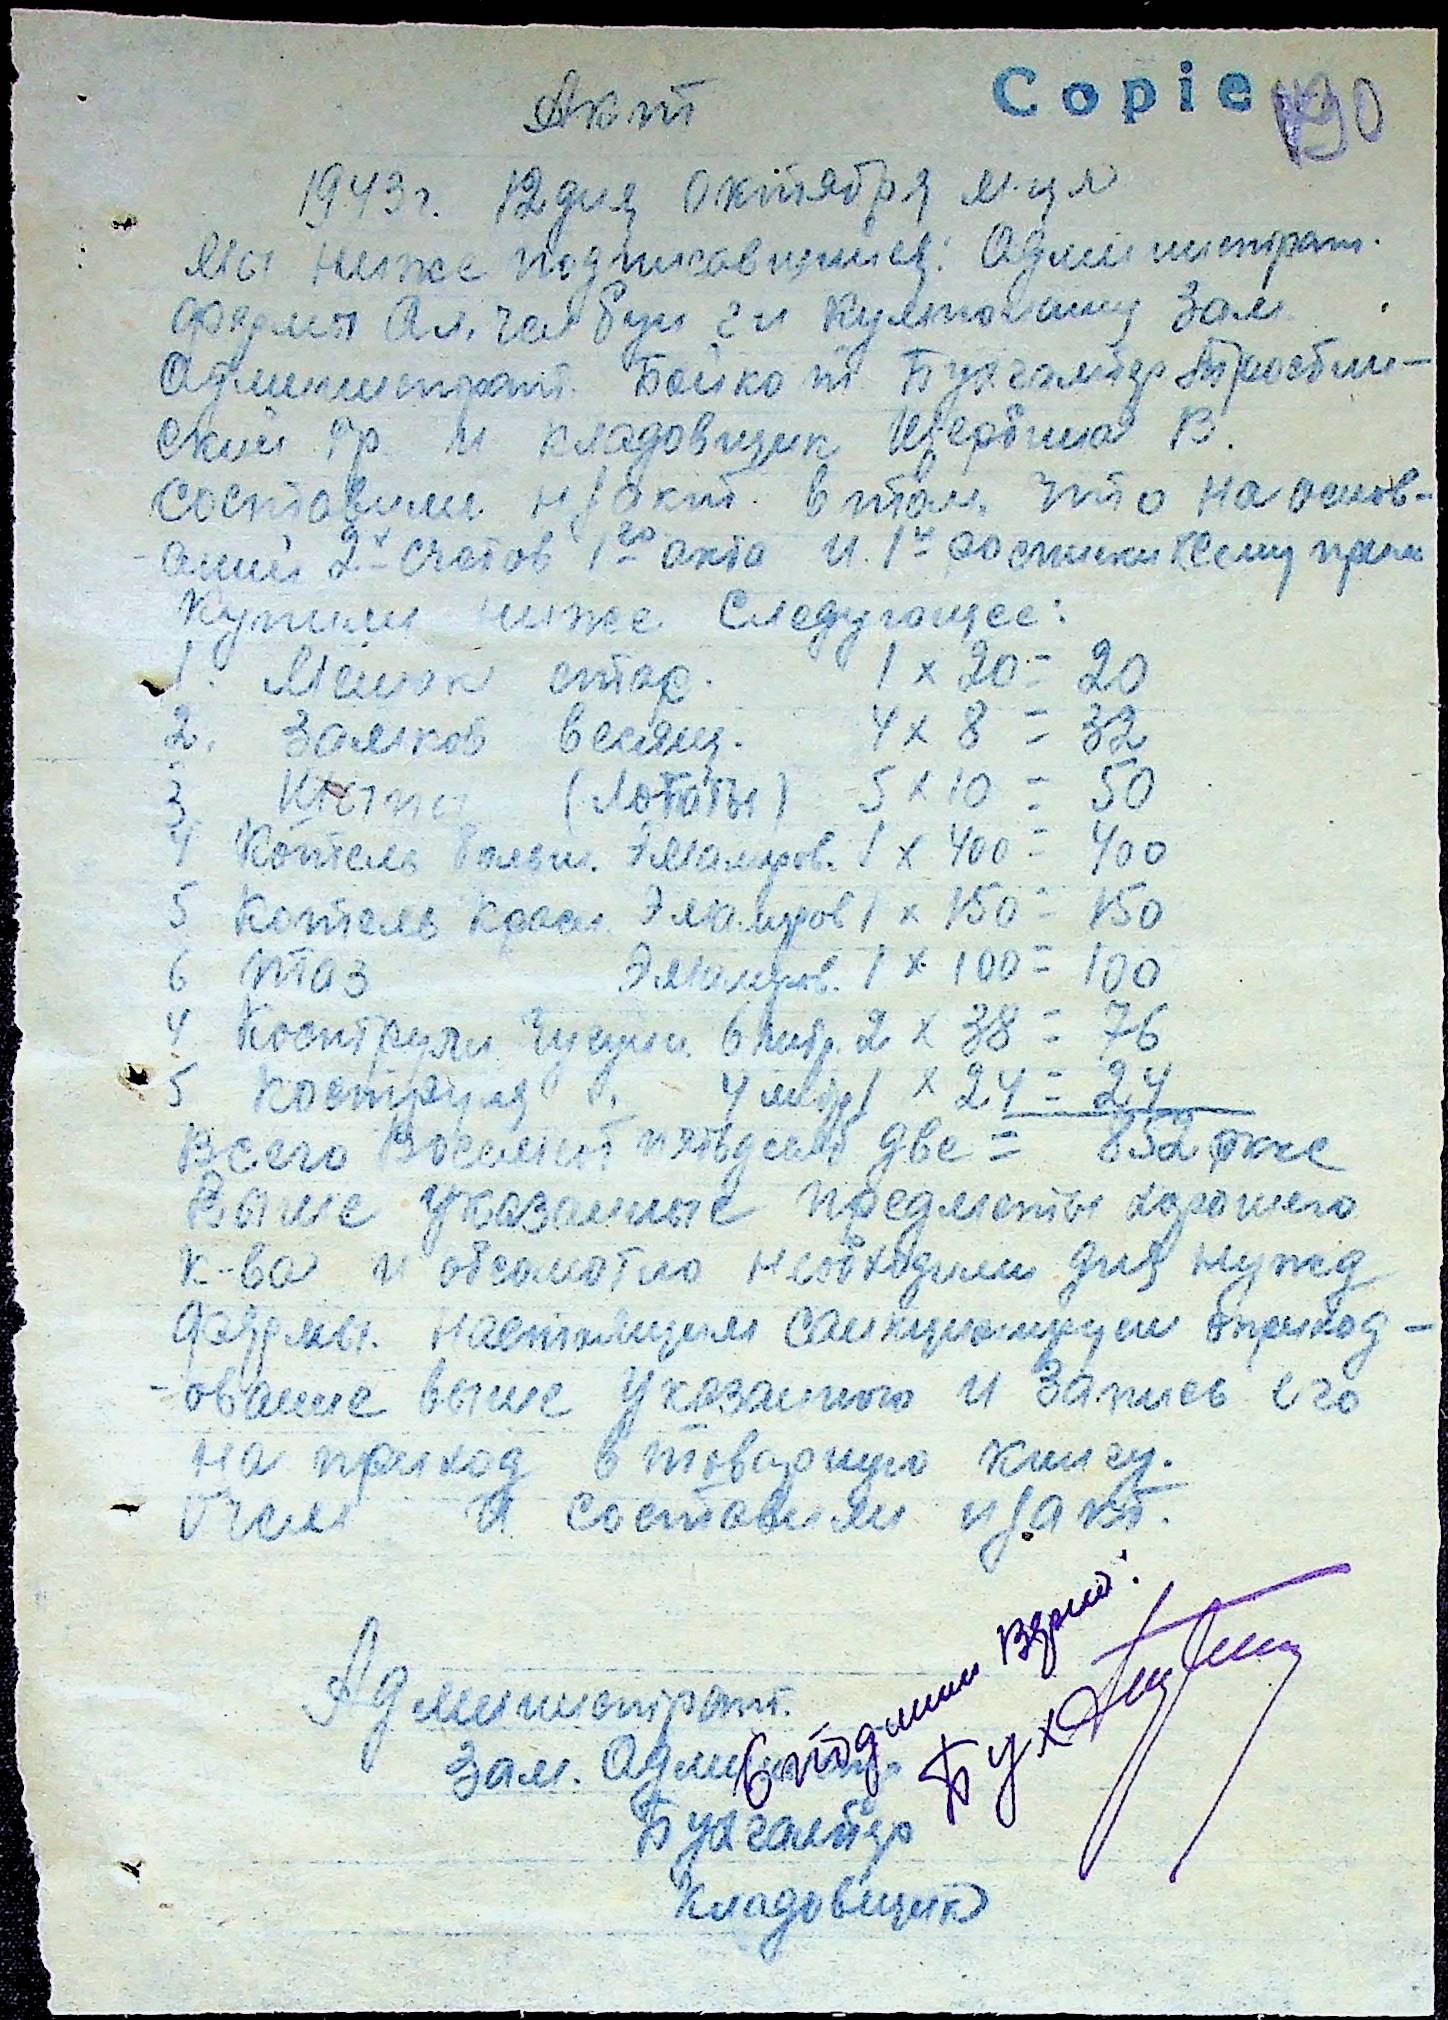 Copie
490
Акт
1943 г. 12 дня Октября м-ця
Мы ниже подписавшиеся: Администрат.
фермы Ал. чел Бун г-н Зам
Администрат. Бойко т Бухгалтер
ский Гр и кладовщик Щербина В.
составили н/акт. в том, что на основ-
ании 2х счетов 1го акта и 1й росписки к сему прил
Купили ниже Следующее:
1. Мешок стар. 1 x 20 = 20
2. Замков висящ. 4 x 8 = 32
3 (Лопаты) 5 x 10 = 50
4 Котель больш. Эмалиров. 1 x 400 = 400
5 Котель Красн. Эмалиров 1 x 150 = 150
6 Таз Эмалиров. 1 x 100 = 100
4 Кострули Чугун. 6 литр. 2 x 38 = 76
5 Коструля ". 4 литр 1 x 24 = 24
Всего Восемьсот пятьдесят две = 852
Выше указанные предметы хорошего
к-ва и обсолютно необходими для нужд
фермы. Настоящим санкционируем оприход-
-ование выше указанного и Запись его
на приход в товарную книгу.
О чем и составили н/акт.
Администрат.
Зам. Админстр
Бухгалтер
Кладовщик
С подлин верно:
Бух